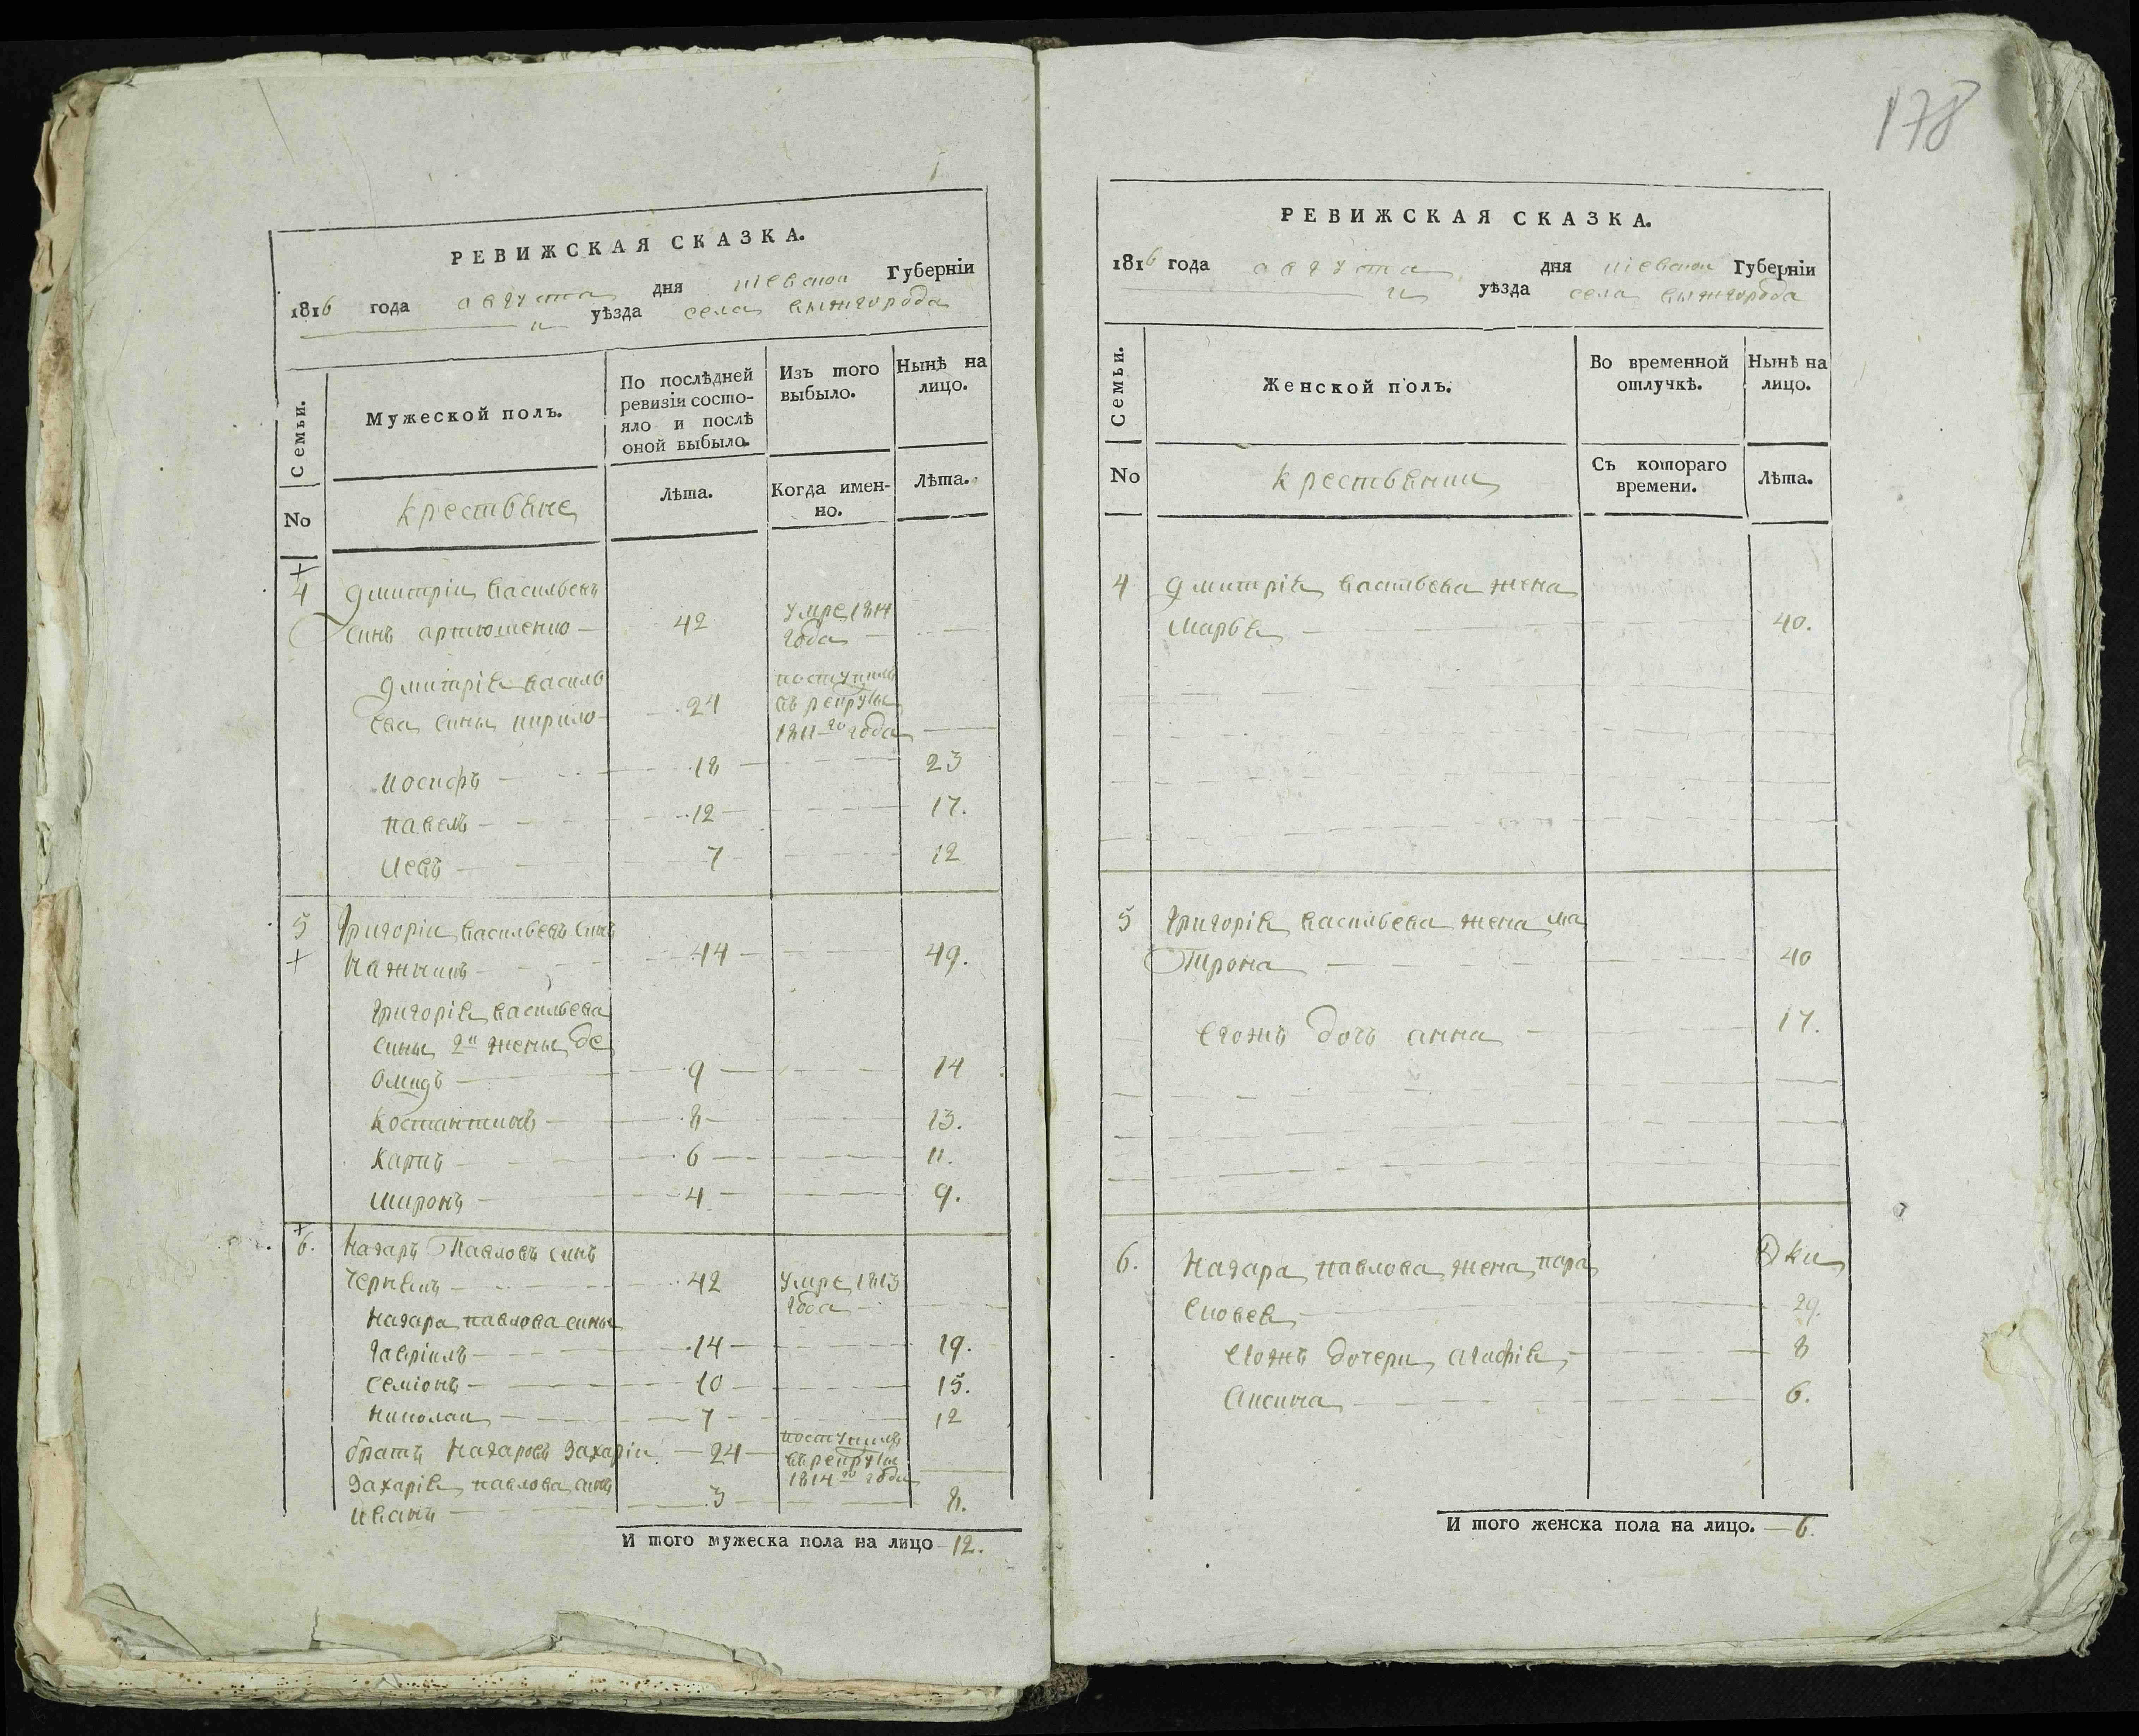 178
РЕВИЖСКАЯ СКАЗКА.
1816 года августа дня киевской Губерніи
уѣзда села вышгорода
Семьи.
Мужеской полъ.
По послѣдней ревизіи состо-
яло и послѣ
оной выбыло.
Изъ того выбыло.
Нынѣ на лицо.
No
крестьяне
Лѣта.
Когда имен-
но.
Лѣта.
4 Дмитріи васильевъ
синъ артюшенко 42 умре 1814
года
Дмитрія василь
ева сины кирило 24 поступилъ
въ рекруты
1811 го года
иосифъ 18 23
павелъ 12 17.
иевъ 7 12
5 Григоріи васильевъ синъ
44 49.
Григорія васильева
сины 2й жены де
омидъ 9 14
костантинъ 8 13.
карпъ 6 11.
миронъ 4 9.
6. Назаръ Павловъ синъ
42 умре 1813
года
Назара павлова сины
гавріилъ 14 19.
семіонъ 10 15.
николаи 7 12
братъ Назаровъ Захаріи 24 поступилъ
въ рекруты
1814 го года
Захарія павлова синъ
иванъ 3 8.
И того мужеска пола на лицо 12.
РЕВИЖСКАЯ СКАЗКА.
1816 года августа дня киевской Губерніи
уѣзда села вышгорода
Семьи.
Женской полъ.
Во временной отлучкѣ.
Нынѣ на лицо.
No
крестьянки
Съ котораго времени.
Лѣта.
4 Дмитрія васильева жена
марья 40.
5 Григорія васильева жена ма
трона 40
егожъ дочь анна 17.
6. Назара павлова жена пара
сковея 29.
егожъ дочери агафія 8
аксина 6.
И того женска пола на лицо. 6.